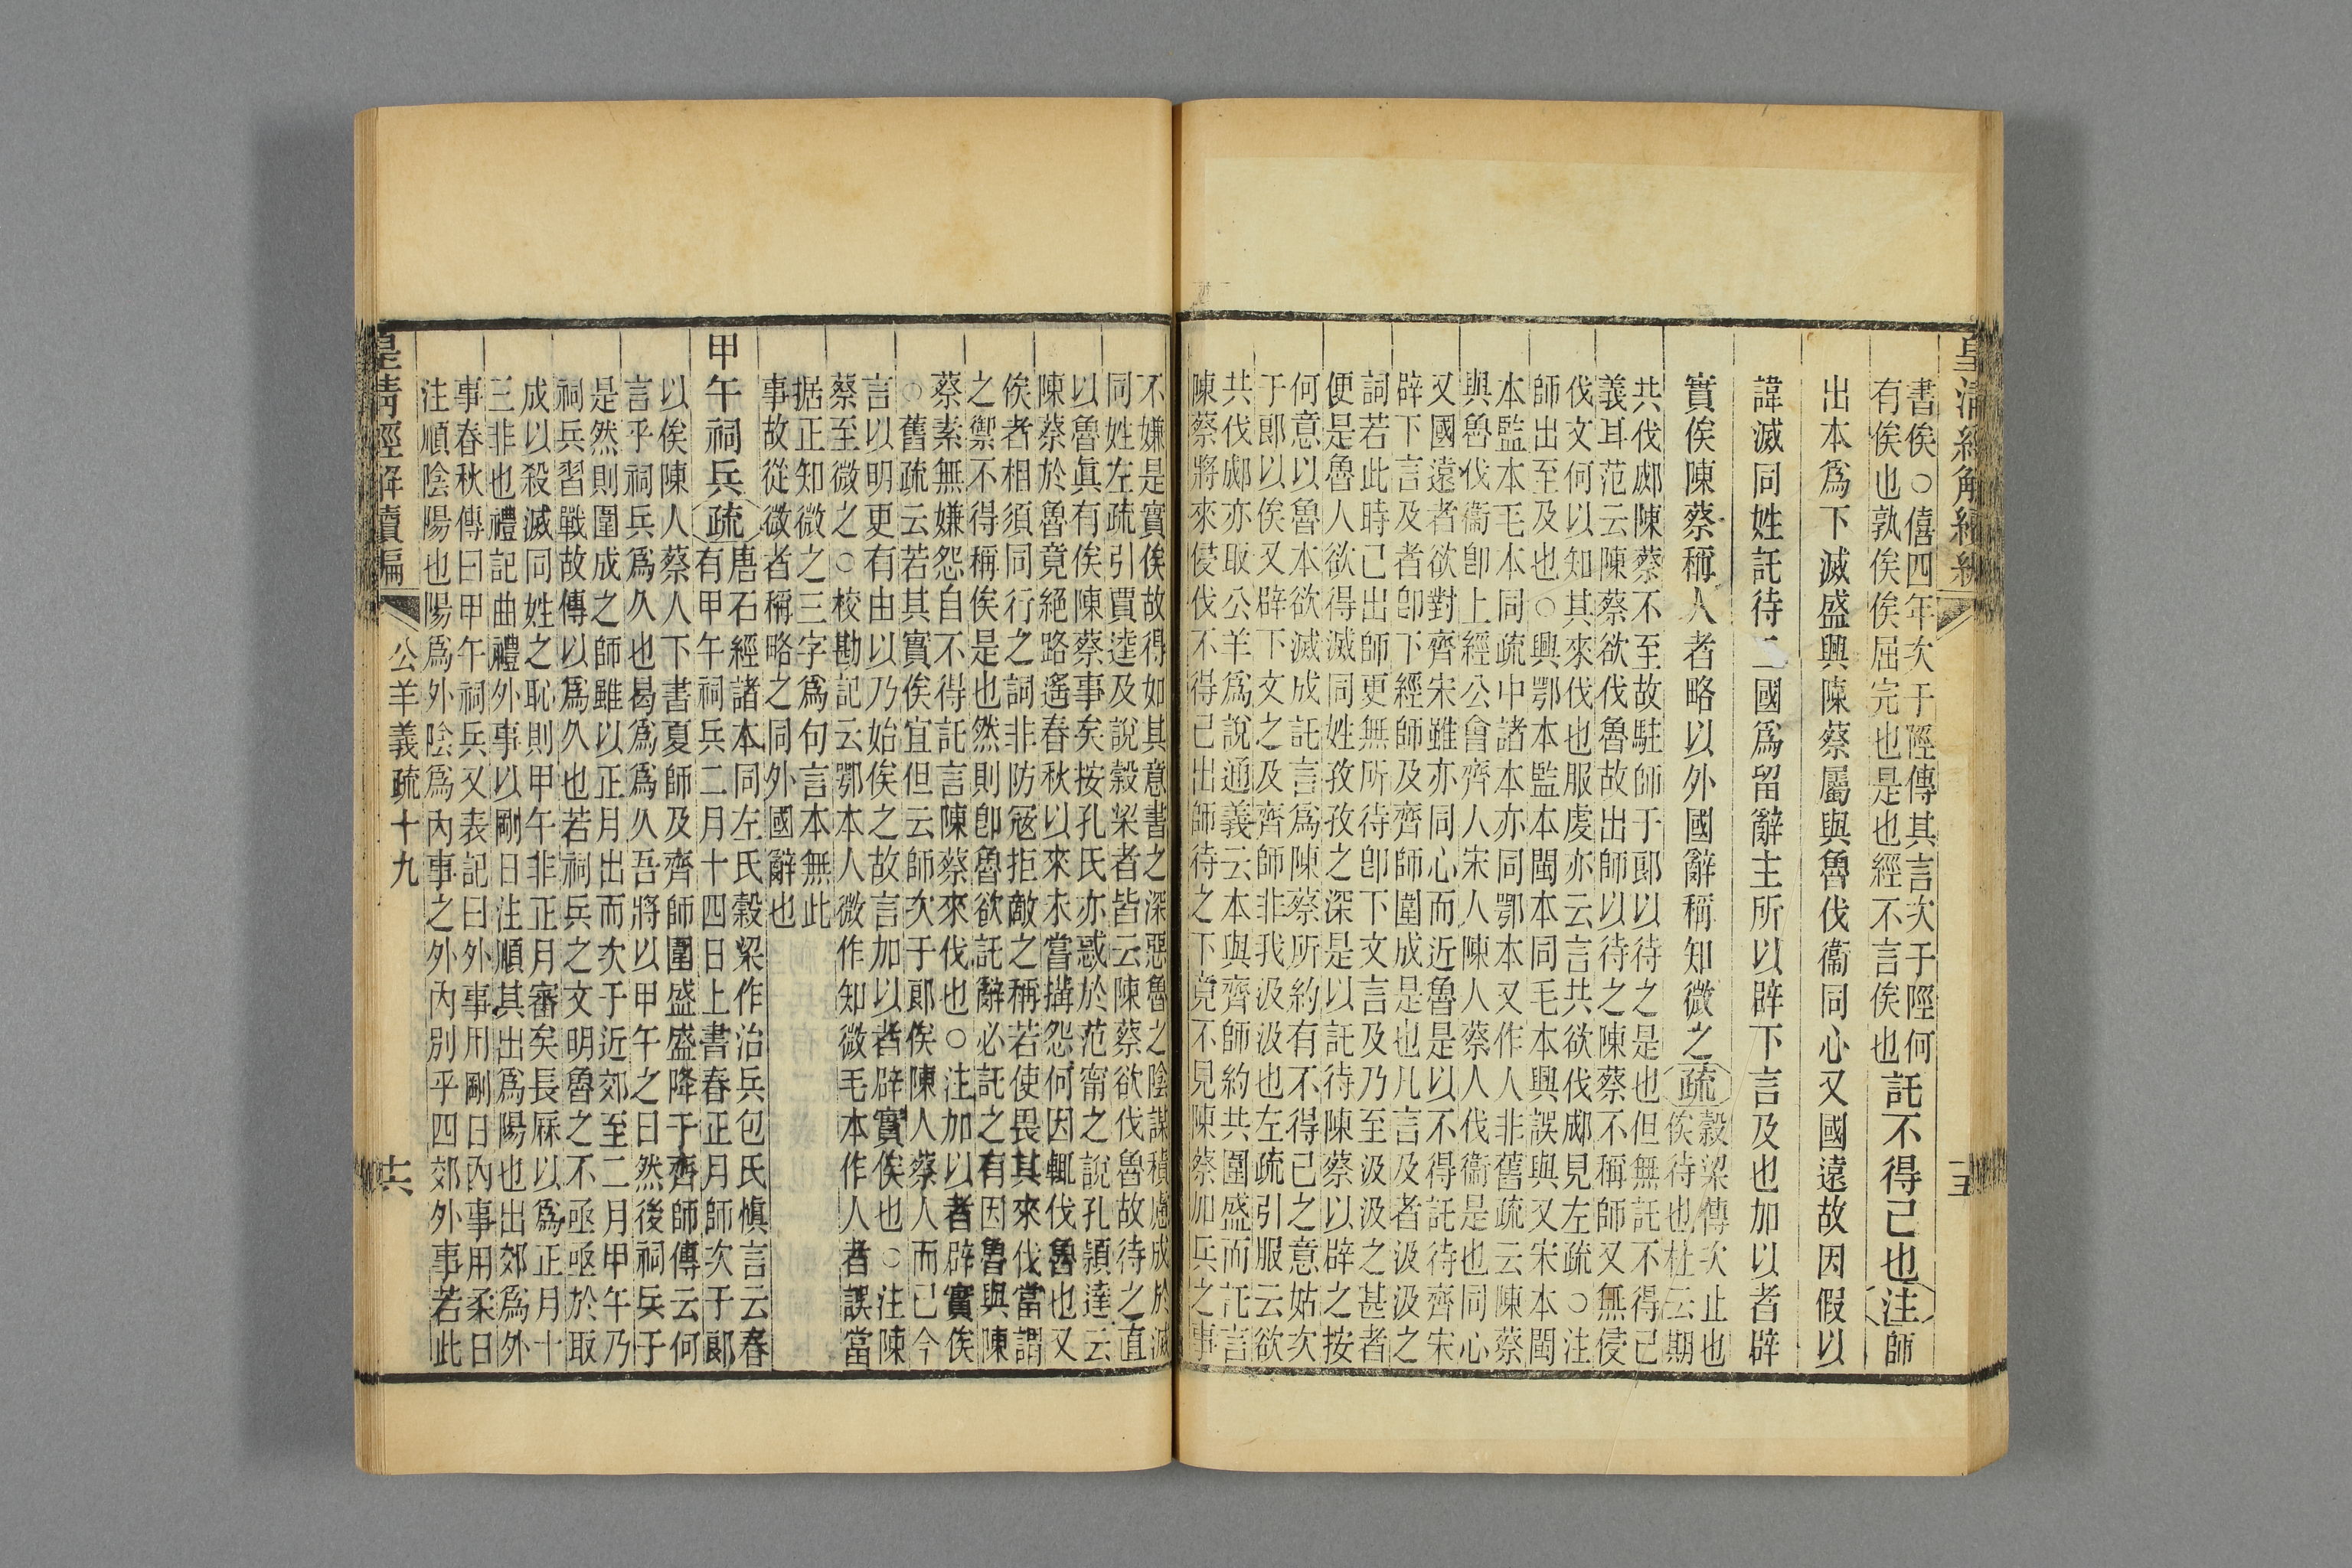 皇清經解續編
書俟○僖四年次于陘傳其言次于陘何
有俟也孰俟俟屈完也是也經不言俟也
託不得已也注師
出本爲下滅盛興陳蔡屬與魯伐衞同心又國遠故因假以
諱滅同姓託待二國爲留辭主所以辟下言及也加以者辟
實俟陳蔡稱人者略以外國辭稱知微之疏
穀梁傳次止也
俟待也杜云期
共伐郕陳蔡不至故駐師于郎以待之是也但無託不得已
義耳范云陳蔡欲伐魯故出師以待之陳蔡不稱師又無侵
伐文何以知其來伐也服虔亦云言共欲伐郕見左疏○注
師出至及也○興鄂本監本閩本同毛本興誤與又宋本閩
本監本毛本同疏中諸本亦同鄂本又作人非舊疏云陳蔡
與魯伐衞卽上經公會齊人宋人陳人蔡人伐衞是也同心
又國遠者欲對齊宋雖亦同心而近魯是以不得託待齊宋
辟下言及者卽下經師及齊師圍成是也凡言及者汲汲之
詞若此時已出師更無所待卽下文言及乃至汲汲之甚者
便是魯人欲得滅同姓孜孜之深是以託待陳蔡以辟之按
何意以魯本欲滅成託言爲陳蔡所約有不得已之意姑次
于郎以俟又辟下文之及齊師非我汲汲也左疏引服云欲
共伐郕亦取公羊爲說通義云本與齊師約共圍盛而託言
陳蔡將來侵伐不得已出師待之下竟不見陳蔡加兵之事
十五
不嫌是實俟故得如其意書之深惡魯之陰謀積慮成於滅
同姓左疏引賈逵及說穀梁者皆云陳蔡欲伐魯故待之直
以魯眞有俟陳蔡事矣按孔氏亦惑於范甯之說孔穎達云
陳蔡於魯竟絕路遙春秋以來未嘗搆怨何因輒伐魯也又
俟者相須同行之詞非防寇拒敵之稱若使畏其來伐當謂
之禦不得稱俟是也然則卽魯欲託辭必託之有因魯與陳
蔡素無嫌怨自不得託言陳蔡來伐也○注加以者辟實俟
○舊疏云若其實俟宜但云師次于郎俟陳人蔡人而已今
言以明更有由以乃始俟之故言加以者辟實俟也○注陳
蔡至微之○校勘記云鄂本人微作知微毛本作人者誤當
据正知微之三字爲句言本無此
事故從微者稱略之同外國辭也
甲午祠兵疏
唐石經諸本同左氏穀梁作治兵包氏愼言云春
有甲午祠兵二月十四日上書春正月師次于郎
以俟陳人蔡人下書夏師及齊師圍盛盛降于齊師傳云何
言乎祠兵爲久也曷爲爲久吾將以甲午之日然後祠兵于
是然則圍成之師雖以正月出而次于近郊至二月甲午乃
祠兵習戰故傳以爲久也若祠兵之文明魯之不亟亟於取
成以殺滅同姓之恥則甲午非正月審矣長厤以爲正月十
三非也禮記曲禮外事以剛日注順其出爲陽也出郊爲外
事春秋傳曰甲午祠兵又表記曰外事用剛日內事用柔日
注順陰陽也陽爲外陰爲內事之外內別乎四郊外事若此
皇淸經解續編
公羊義疏十九
十六